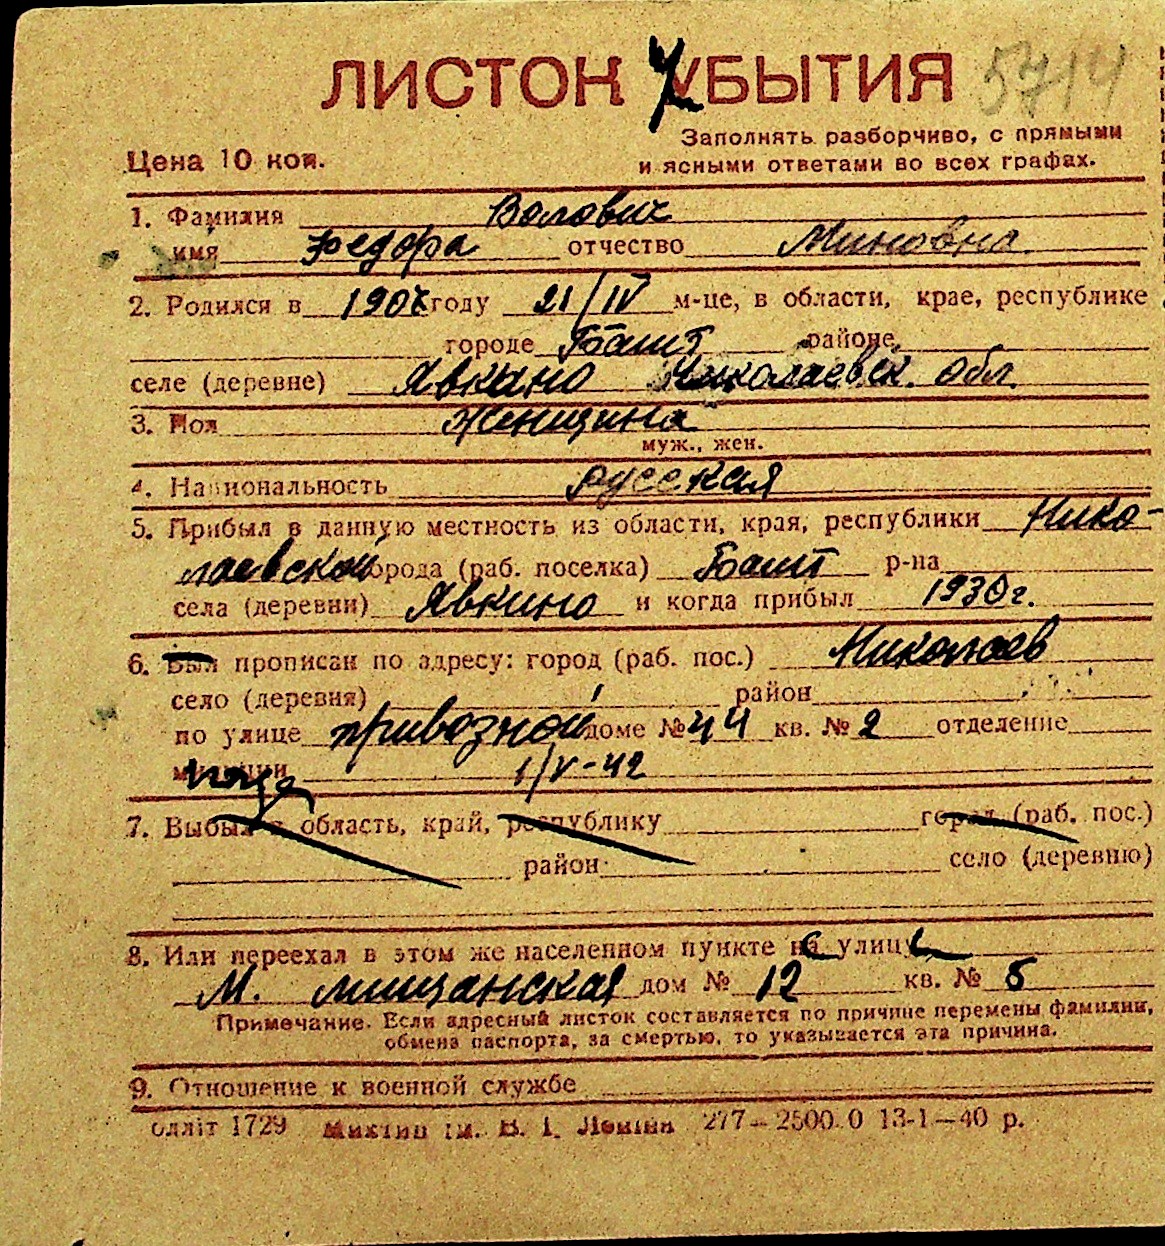 ЛИСТОК УБЫТИЯ 5714
Заполнять разборчиво, с прямыми
Цена 10 коп. и ясными ответами во всех графах.
1. Фамилия Волович
имя Федора отчество Миновна
2. Родился в 1907 году 21/IV м-це, в области, крае, республике
городе Башт районе
селе (деревне) Явкино Николаевск. обл.
3. Пол Женщина
муж., жен.
4. Национальность русская
5. Прибыл в данную местность из области, края, республики Нико-
лаевской города (раб. поселка) Башт р-на
села (деревни) Явкино и когда прибыл 1930 г.
6. Был прописан по адресу: город (раб. пос.) Николаев
село (деревня) район
по улице привозной доме № 44 кв. № 2 отделение
милиции 1/V-42
7. Выбыл в область, край, республику город (раб. пос.)
район село (деревню)
8. Или переехал в этом же населенном пункте на улицу
М. мищанская дом № 12 кв. № 5
Примечание. Если адресный листок составляется по причине перемены фамилии,
обмена паспорта, за смертью, то указывается эта причина.
9. Отношение к военной службе
блліт 1729 Миктип ім. В. І. Леніна 277—2500.0 13-1—40 р.